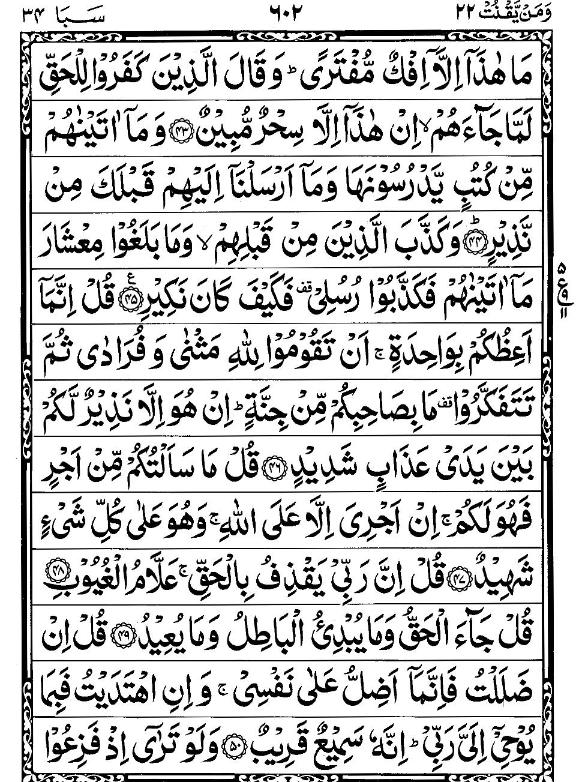 وَمَنْ يَّقْنُتْ ٢٢ ٦٠٢ سَبَا ٣٤
مَا هٰذَاۤ اِلَّاۤ اِفْكٌ مُّفْتَرًى ؕ وَقَالَ الَّذِيْنَ كَفَرُوْا لِلْحَقِّ
لَمَّا جَآءَهُمْ ۙ اِنْ هٰذَاۤ اِلَّا سِحْرٌ مُّبِيْنٌ ﴿٤٣﴾ وَمَاۤ اٰتَيْنٰهُمْ
مِّنْ كُتُبٍ يَّدْرُسُوْنَهَا وَمَاۤ اَرْسَلْنَاۤ اِلَيْهِمْ قَبْلَكَ مِنْ
نَّذِيْرٍ ﴿٤٤﴾ؕ وَكَذَّبَ الَّذِيْنَ مِنْ قَبْلِهِمْ ۙ وَمَا بَلَغُوْا مِعْشَارَ
مَاۤ اٰتَيْنٰهُمْ فَكَذَّبُوْا رُسُلِيْ ۫ قف فَكَيْفَ كَانَ نَكِيْرِ ﴿٤٥﴾ قُلْ اِنَّمَاۤ
اَعِظُكُمْ بِوَاحِدَةٍ ۚ اَنْ تَقُوْمُوْا لِلّٰهِ مَثْنٰى وَ فُرَادٰى ثُمَّ
تَتَفَكَّرُوْا ۫ قف مَا بِصَاحِبِكُمْ مِّنْ جِنَّةٍ ؕ اِنْ هُوَ اِلَّا نَذِيْرٌ لَّكُمْ
بَيْنَ يَدَيْ عَذَابٍ شَدِيْدٍ ﴿٤٦﴾ قُلْ مَا سَاَلْتُكُمْ مِّنْ اَجْرٍ
فَهُوَ لَكُمْ ؕ اِنْ اَجْرِيَ اِلَّا عَلَى اللّٰهِ ۚ وَهُوَ عَلٰى كُلِّ شَيْءٍ
شَهِيْدٌ ﴿٤٧﴾ قُلْ اِنَّ رَبِّيْ يَقْذِفُ بِالْحَقِّ ۚ عَلَّامُ الْغُيُوْبِ ﴿٤٨﴾
قُلْ جَآءَ الْحَقُّ وَمَا يُبْدِئُ الْبَاطِلُ وَمَا يُعِيْدُ ﴿٤٩﴾ قُلْ اِنْ
ضَلَلْتُ فَاِنَّمَاۤ اَضِلُّ عَلٰى نَفْسِيْ ۚ وَ اِنِ اهْتَدَيْتُ فَبِمَا
يُوْحِيْۤ اِلَيَّ رَبِّيْ ؕ اِنَّهٗ سَمِيْعٌ قَرِيْبٌ ﴿٥٠﴾ وَلَوْ تَرٰۤى اِذْ فَزِعُوْا
٥
ع ٩
١١